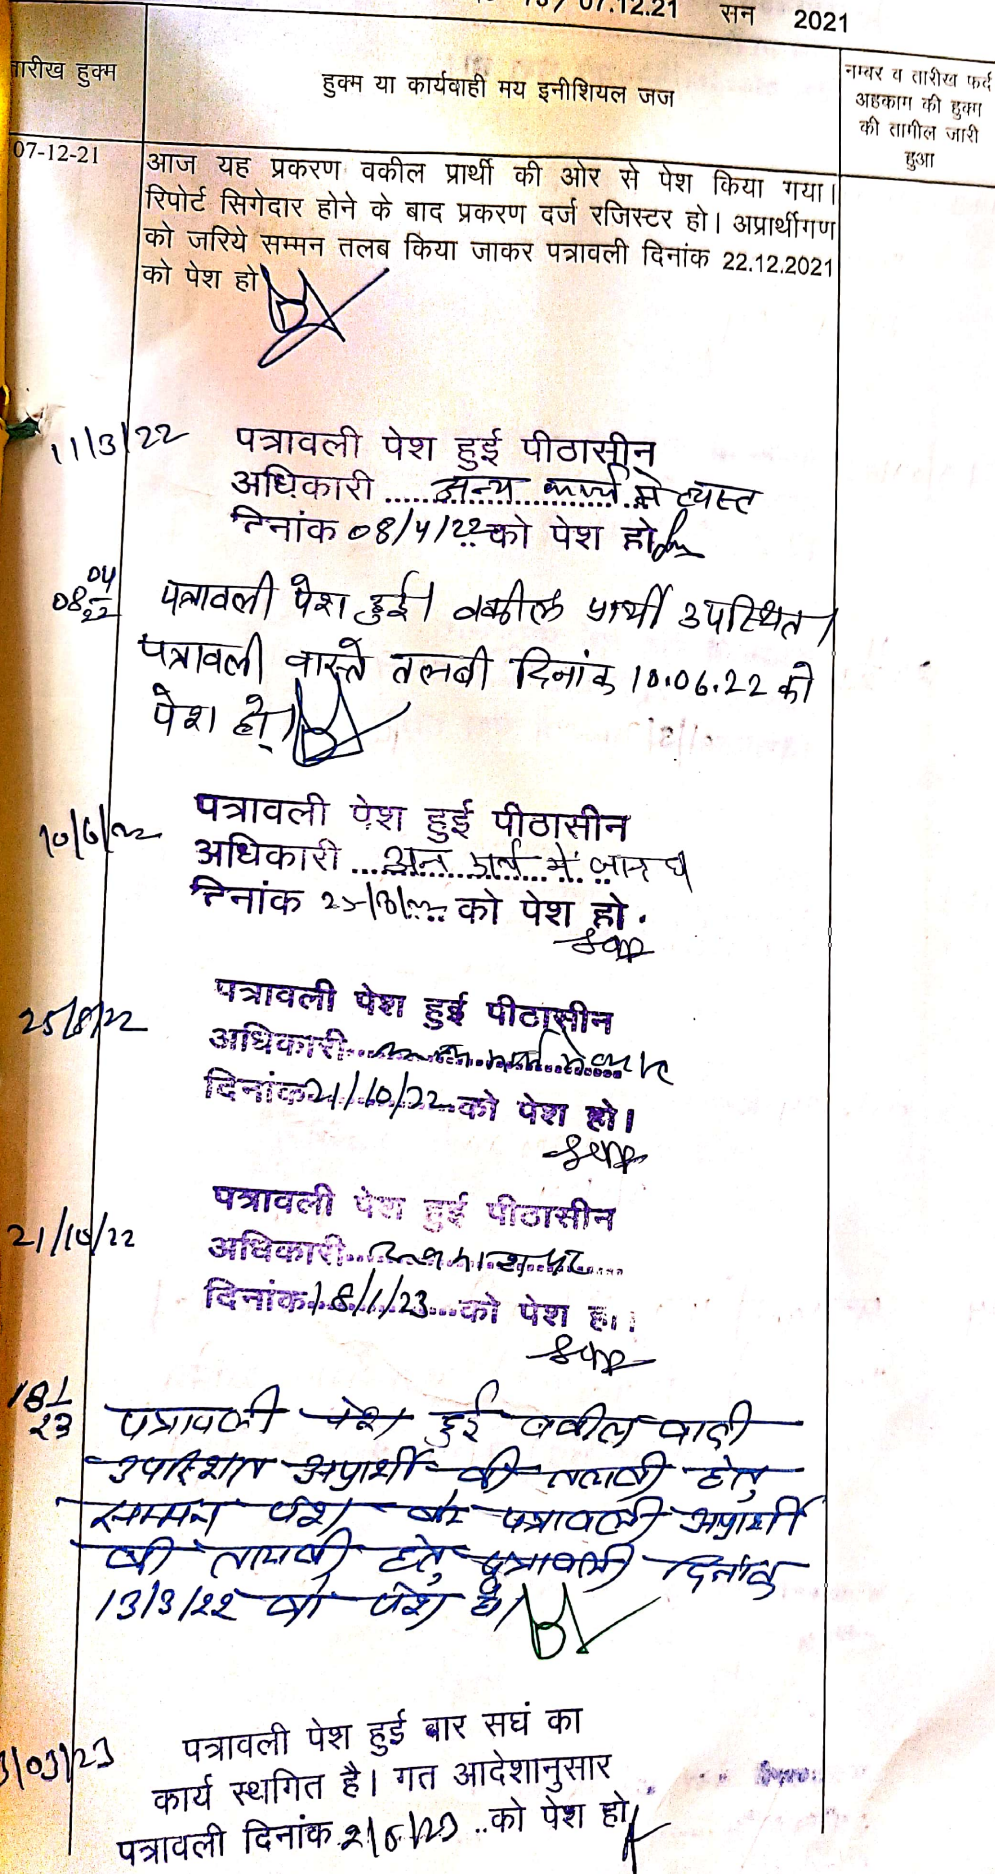 07.12.21 सन 2021
तारीख हुक्म
हुक्म या कार्यवाही मय इनीशियल जज
नम्बर व तारीख फर्द
अहकाम की हुक्म
की तामील जारी
हुआ
07-12-21
आज यह प्रकरण वकील प्रार्थी की ओर से पेश किया गया।
रिपोर्ट सिगेदार होने के बाद प्रकरण दर्ज रजिस्टर हो। अप्रार्थीगण
को जरिये सम्मन तलब किया जाकर पत्रावली दिनांक 22.12.2021
को पेश हो
11/3/22 पत्रावली पेश हुई पीठासीन
अधिकारी अन्य कार्य मे व्यस्त
दिनांक 08/4/22 को पेश हो
08 04/22 पत्रावली पेश हुई। वकील प्रार्थी उपस्थित।
पत्रावली वास्ते तलबी दिनांक 10.06.22 को
पेश हो।
10/6/22 पत्रावली पेश हुई पीठासीन
अधिकारी में
दिनांक को पेश हो.
25/8/22 पत्रावली पेश हुई पीठासीन
अधिकारी
दिनांक 21/10/22 को पेश हो।
21/10/22 पत्रावली पेश हुई पीठासीन
अधिकारी
दिनांक 18/1/23 को पेश हो।
18/1/23 पत्रावली पेश हुई वकील वादी
उपस्थित अप्रार्थी की तलबी हेतु
सम्मन पेश पत्रावली अप्रार्थी
की तलबी हेतु पत्रावली दिनांक
13/3/22 को पेश हो।
3/03/23 पत्रावली पेश हुई बार सघं का
कार्य स्थगित है। गत आदेशानुसार
पत्रावली दिनांक को पेश हो